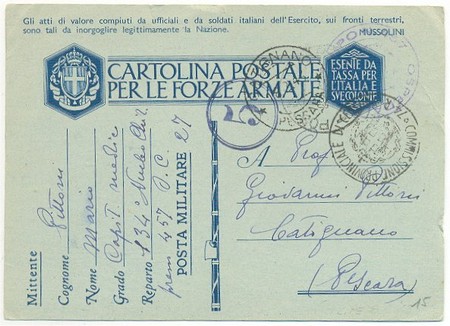 Gli atti di valore compiuti da ufficiali e da soldati italiani dell'Esercito, sui fronti terrestri,
sono tali da inorgoglire legittimamente la Nazione.
MUSSOLINI
CARTOLINA POSTALE
PER LE FORZE ARMATE
ESENTE DA
TASSA PER
L'ITALIA E
SUE COLONIE
PESCARA
25
COMMISSIONE PROVINCIALE
A Prof
Giovanni Pittoni
Catignano
(Pescara)
Mittente
Cognome Pittoni
Nome Mario
Grado Cap. medico
Reparto 134° Nucleo Chir.
presso 457 O. C.
POSTA MILITARE 27
15